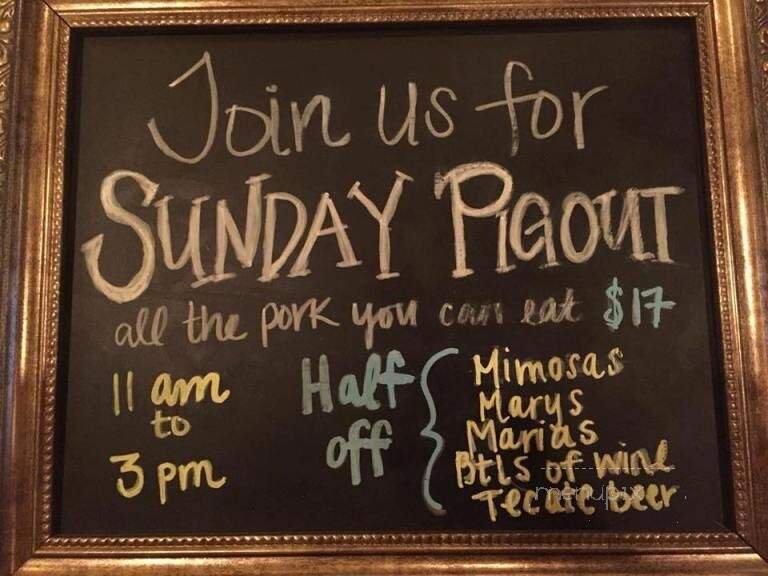 Join us for
SUNDAY PIGOUT
all the pork you can eat $17
11 am
to
3 pm
Half
off
Mimosas
Marys
Marias
Btls of wine
Tecate beer
menupix